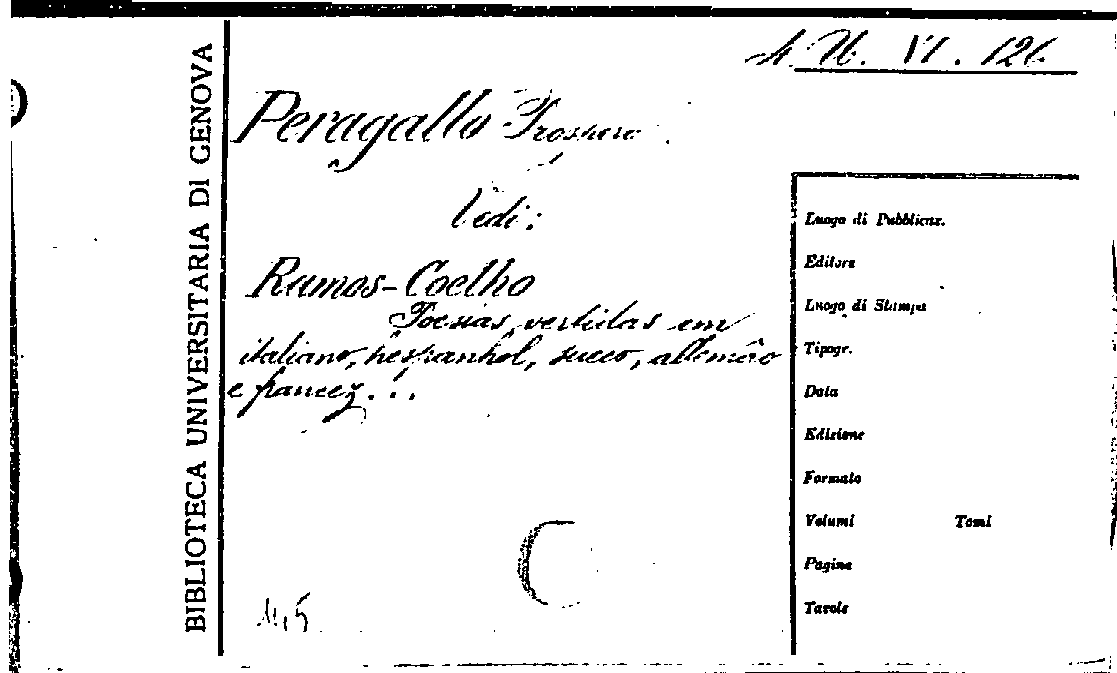 BIBLIOTECA UNIVERSITARIA DI GENOVA
VI. 126
Peragallo Prospero
Vedi:
Ramos-Coelho
Poesias vertidas em
italiano, hespanhol, sueco, allemão
e francez...
Luogo di Pubblicaz.
Editore
Luogo di Stampa
Tipogr.
Data
Edizione
Formato
Volumi Tomi
Pagine
Tavole